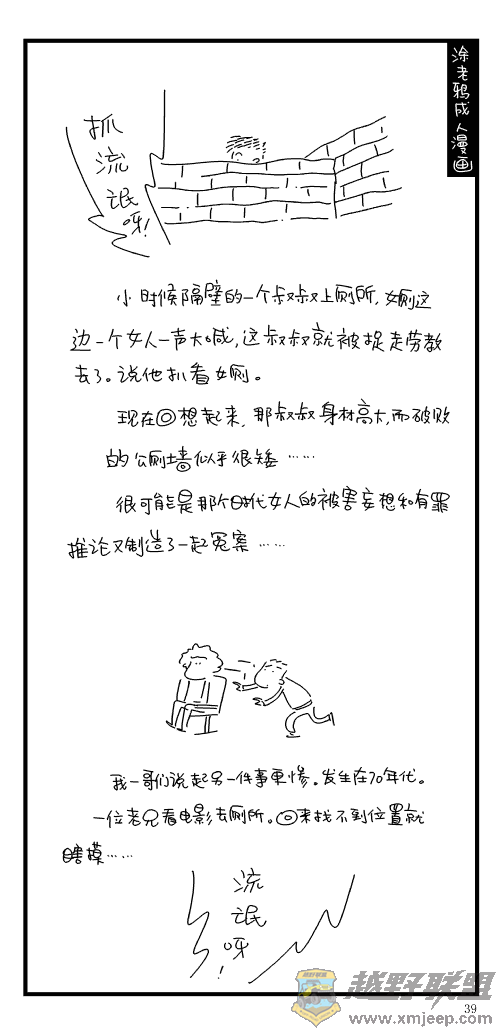 涂老鸦成人漫画
抓流氓呀!
小时候隔壁的一个叔叔上厕所,女厕这
边一个女人一声大喊,这叔叔就被捉走劳教
去了。说他扒看女厕。
现在回想起来,那叔叔身材高大,而破败
的公厕墙似乎很矮……
很可能是那个时代女人的被害妄想和有罪
推论又制造了一起冤案……
我一哥们说起另一件事更惨。发生在70年代。
一位老兄看电影去厕所。回来找不到位置就
瞎摸……
流氓呀!
越野联盟
39
www.xmjeep.com